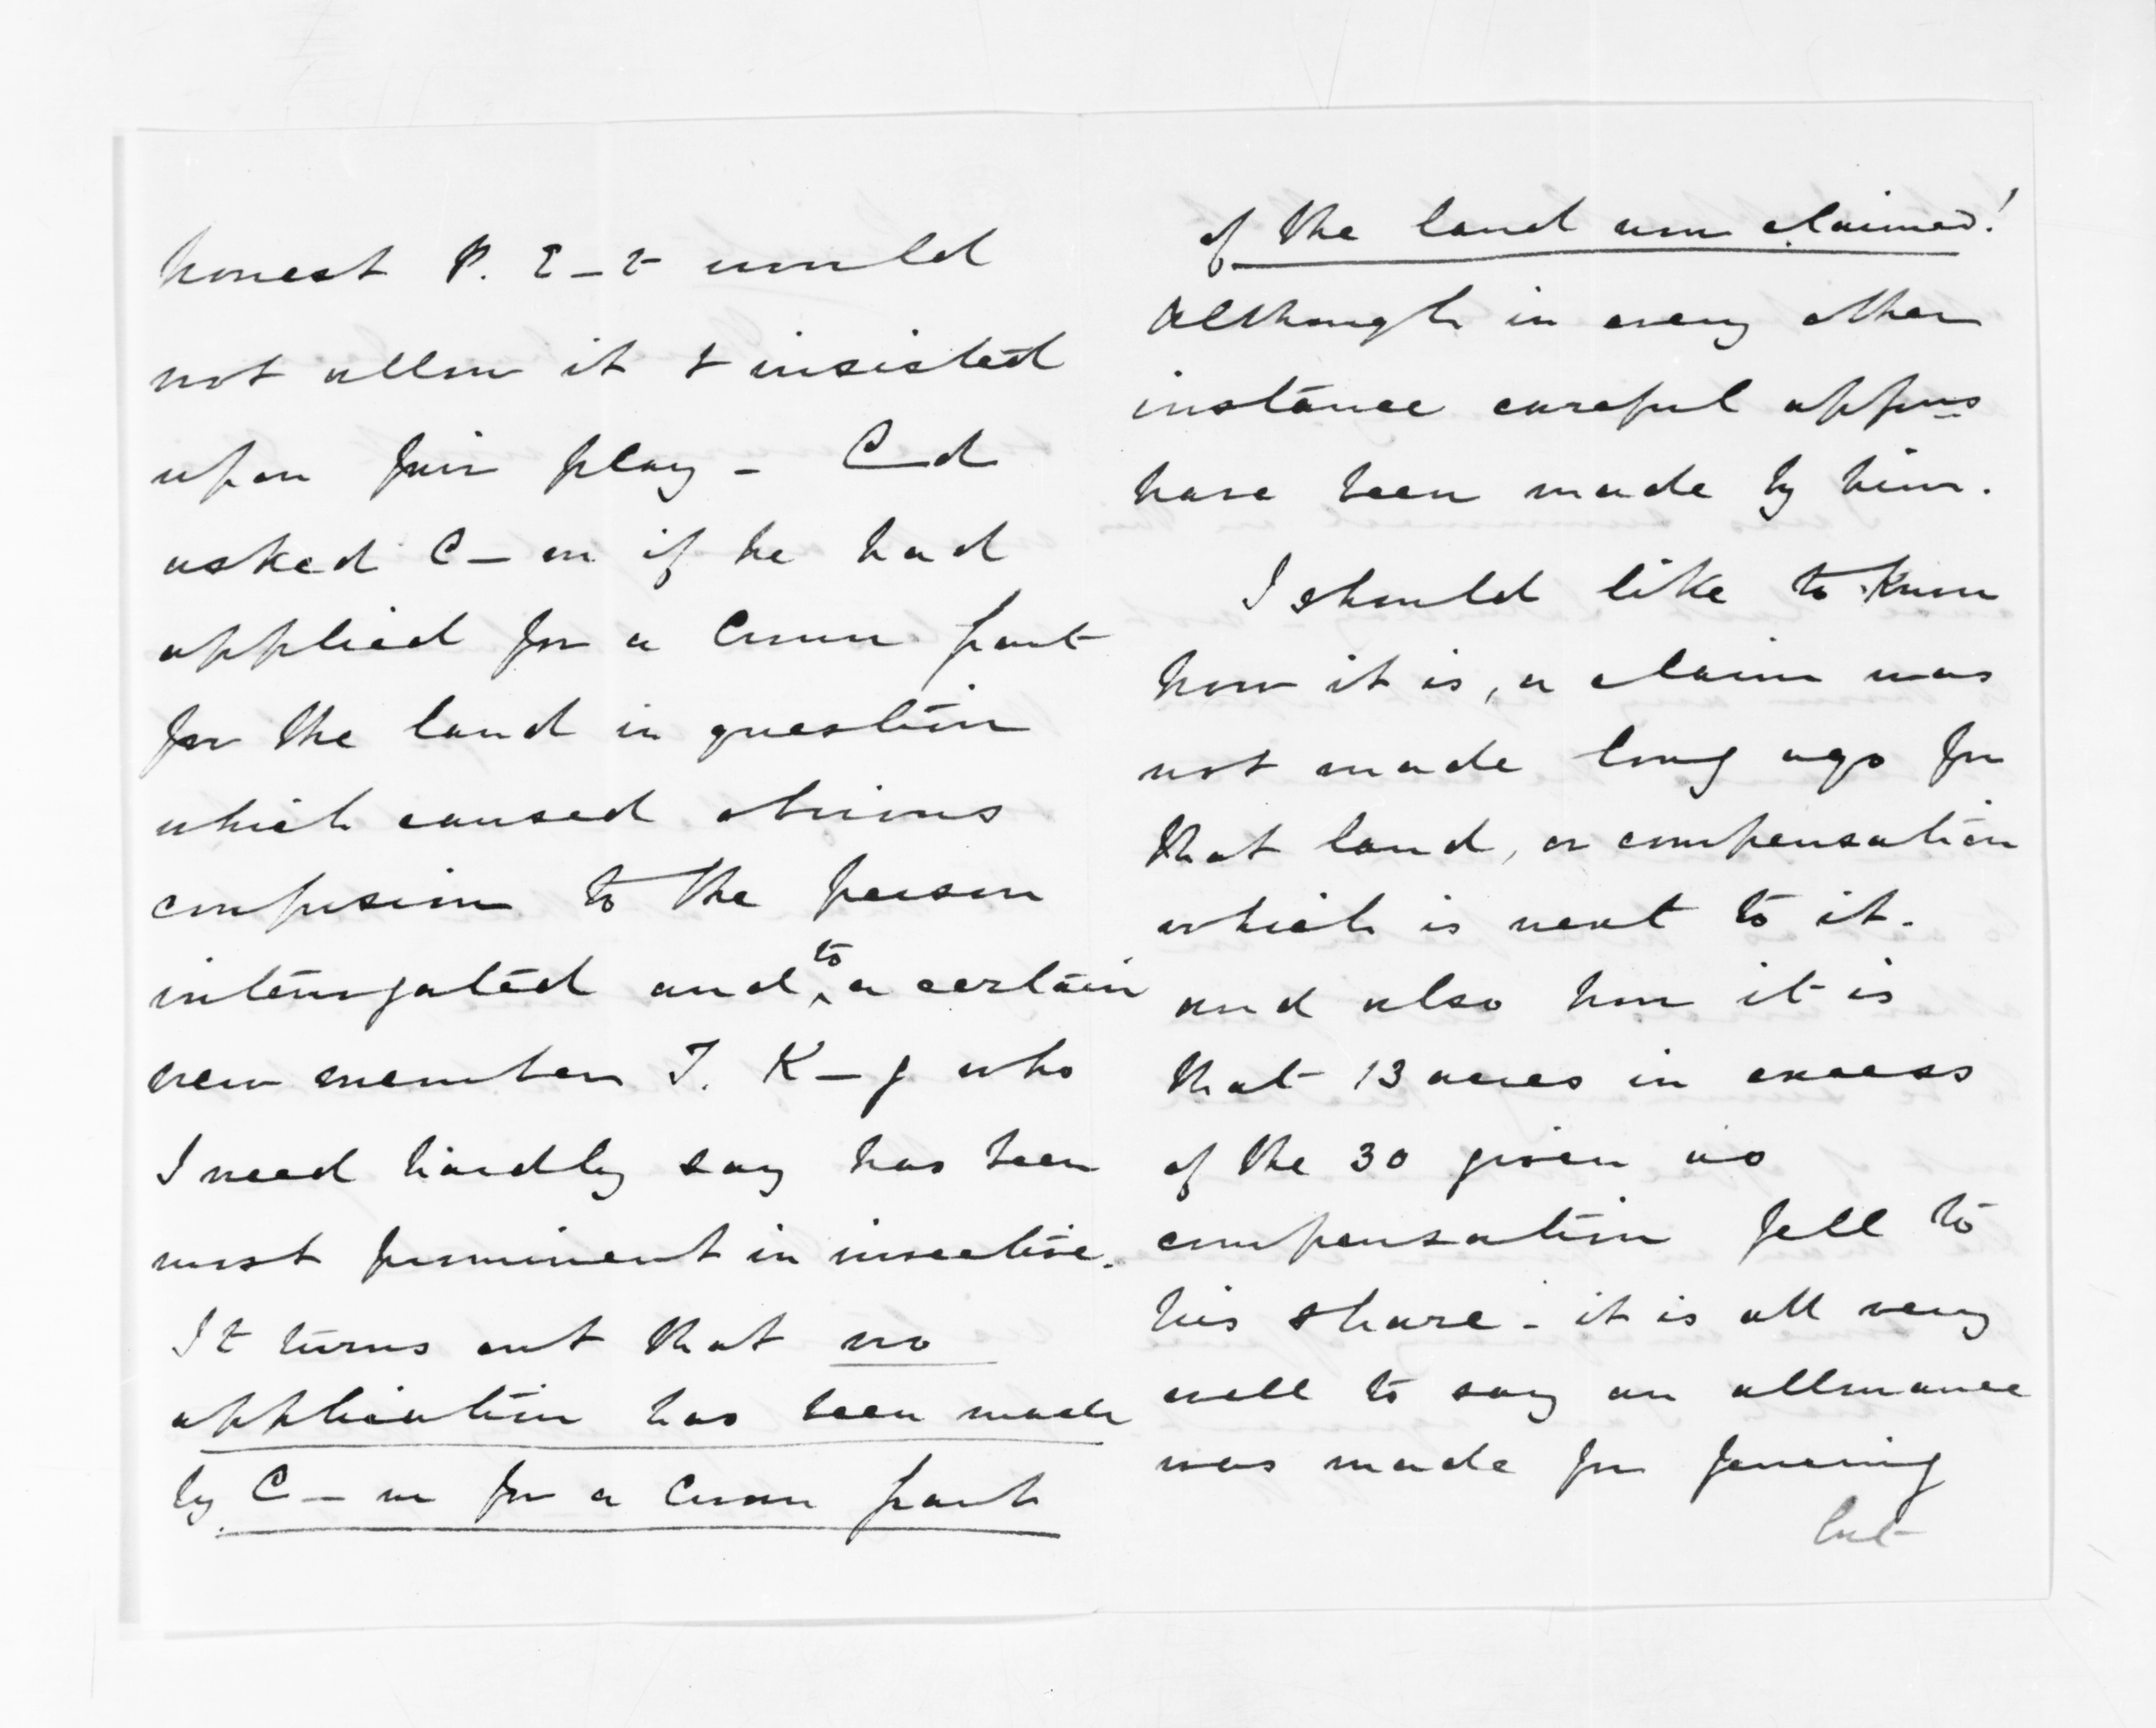 honest P. E–t would
not allow it & insisted
upon fair play – C–d
asked C–m if he had
applied for a Crown grant
for the land in question
which caused obvious
confusion to the person
interrogated and to a certain
new member T. K–g who
I need hardly say has been
most prominent in invective.
It turns out that no
application has been made
by C–m for a Crown grant
of the land now claimed!
Although in every other
instance careful appns
have been made by him.
I should like to know
how it is, a claim was
not made long ago for
that land, or compensation
which is next to it.
and also how it is
that 13 acres in excess
of the 30 given as
compensation fell to
his share – it is all very
well to say an allowance
was made for fencing
but